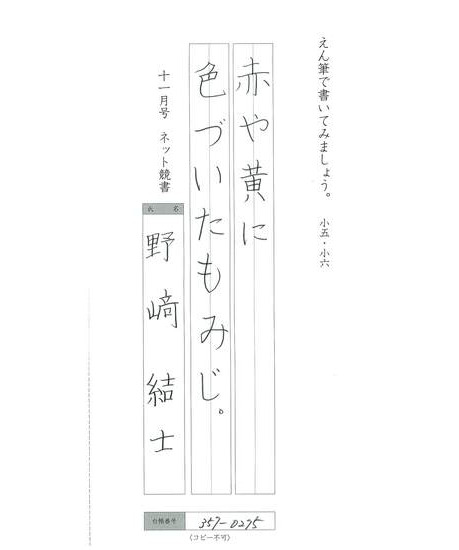 えん筆で書いてみましょう。 小五・小六
赤や黄に
色づいたもみじ。
十一月号 ネット競書
氏名
野﨑結士
台帳番号 357-0275
(コピー不可)